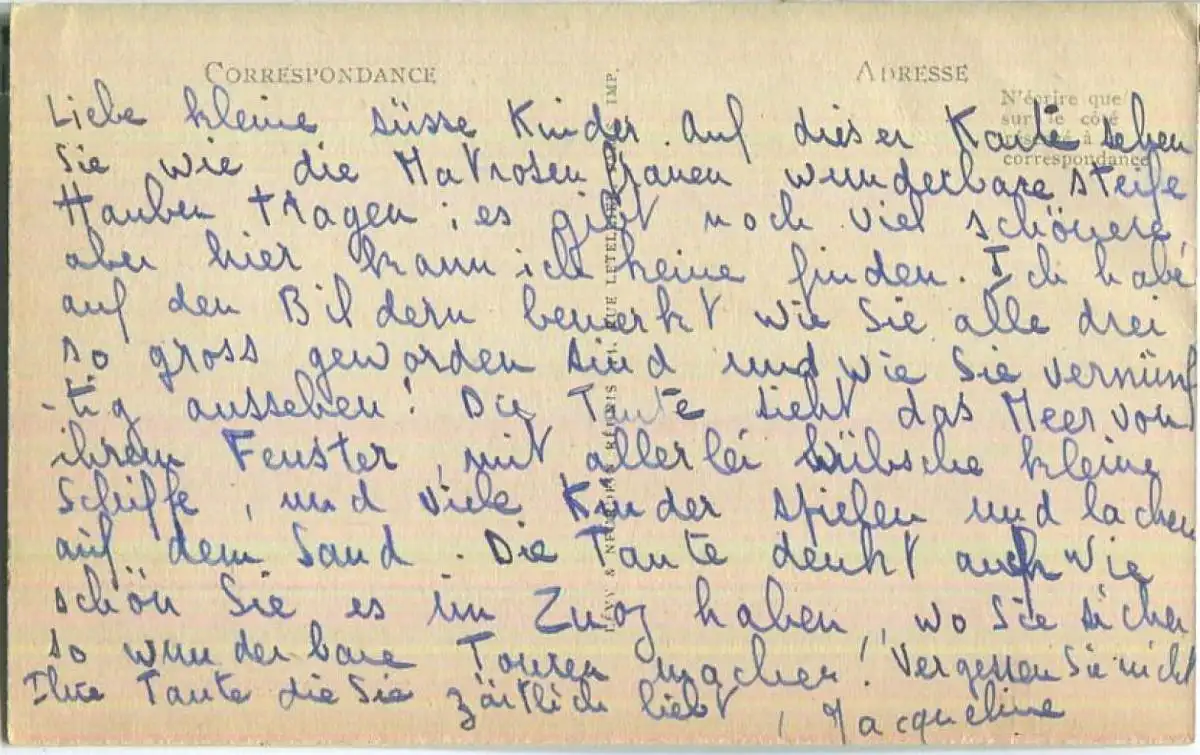 CORRESPONDANCE
ADRESSE
N'écrire que
sur le côté
réservé à la
correspondance
LÉVY & NEURDEIN RÉUNIS 44. RUE LETELLIER PARIS IMP.
Liebe kleine süsse Kinder. Auf dieser Karte sehen
Sie wie die Matrosenfrauen wunderbare steife
Hauben tragen ; es gibt noch viel schönere,
aber hier kann ich keine finden. Ich habe
auf den Bildern bemerkt wie Sie alle drei
so gross geworden sind und wie Sie vernünf
-tig aussehen! Die Tante sieht das Meer von
ihrem Fenster, mit allerlei hübsche kleine
Schiffe, und viele Kinder spielen und lachen
auf dem Sand. Die Tante denkt auch wie
schön Sie es in Zuoz haben, wo Sie sicher
so wunderbare Touren machen! Vergessen Sie nicht
Ihre Tante die Sie zärtlich liebt, Jacqueline